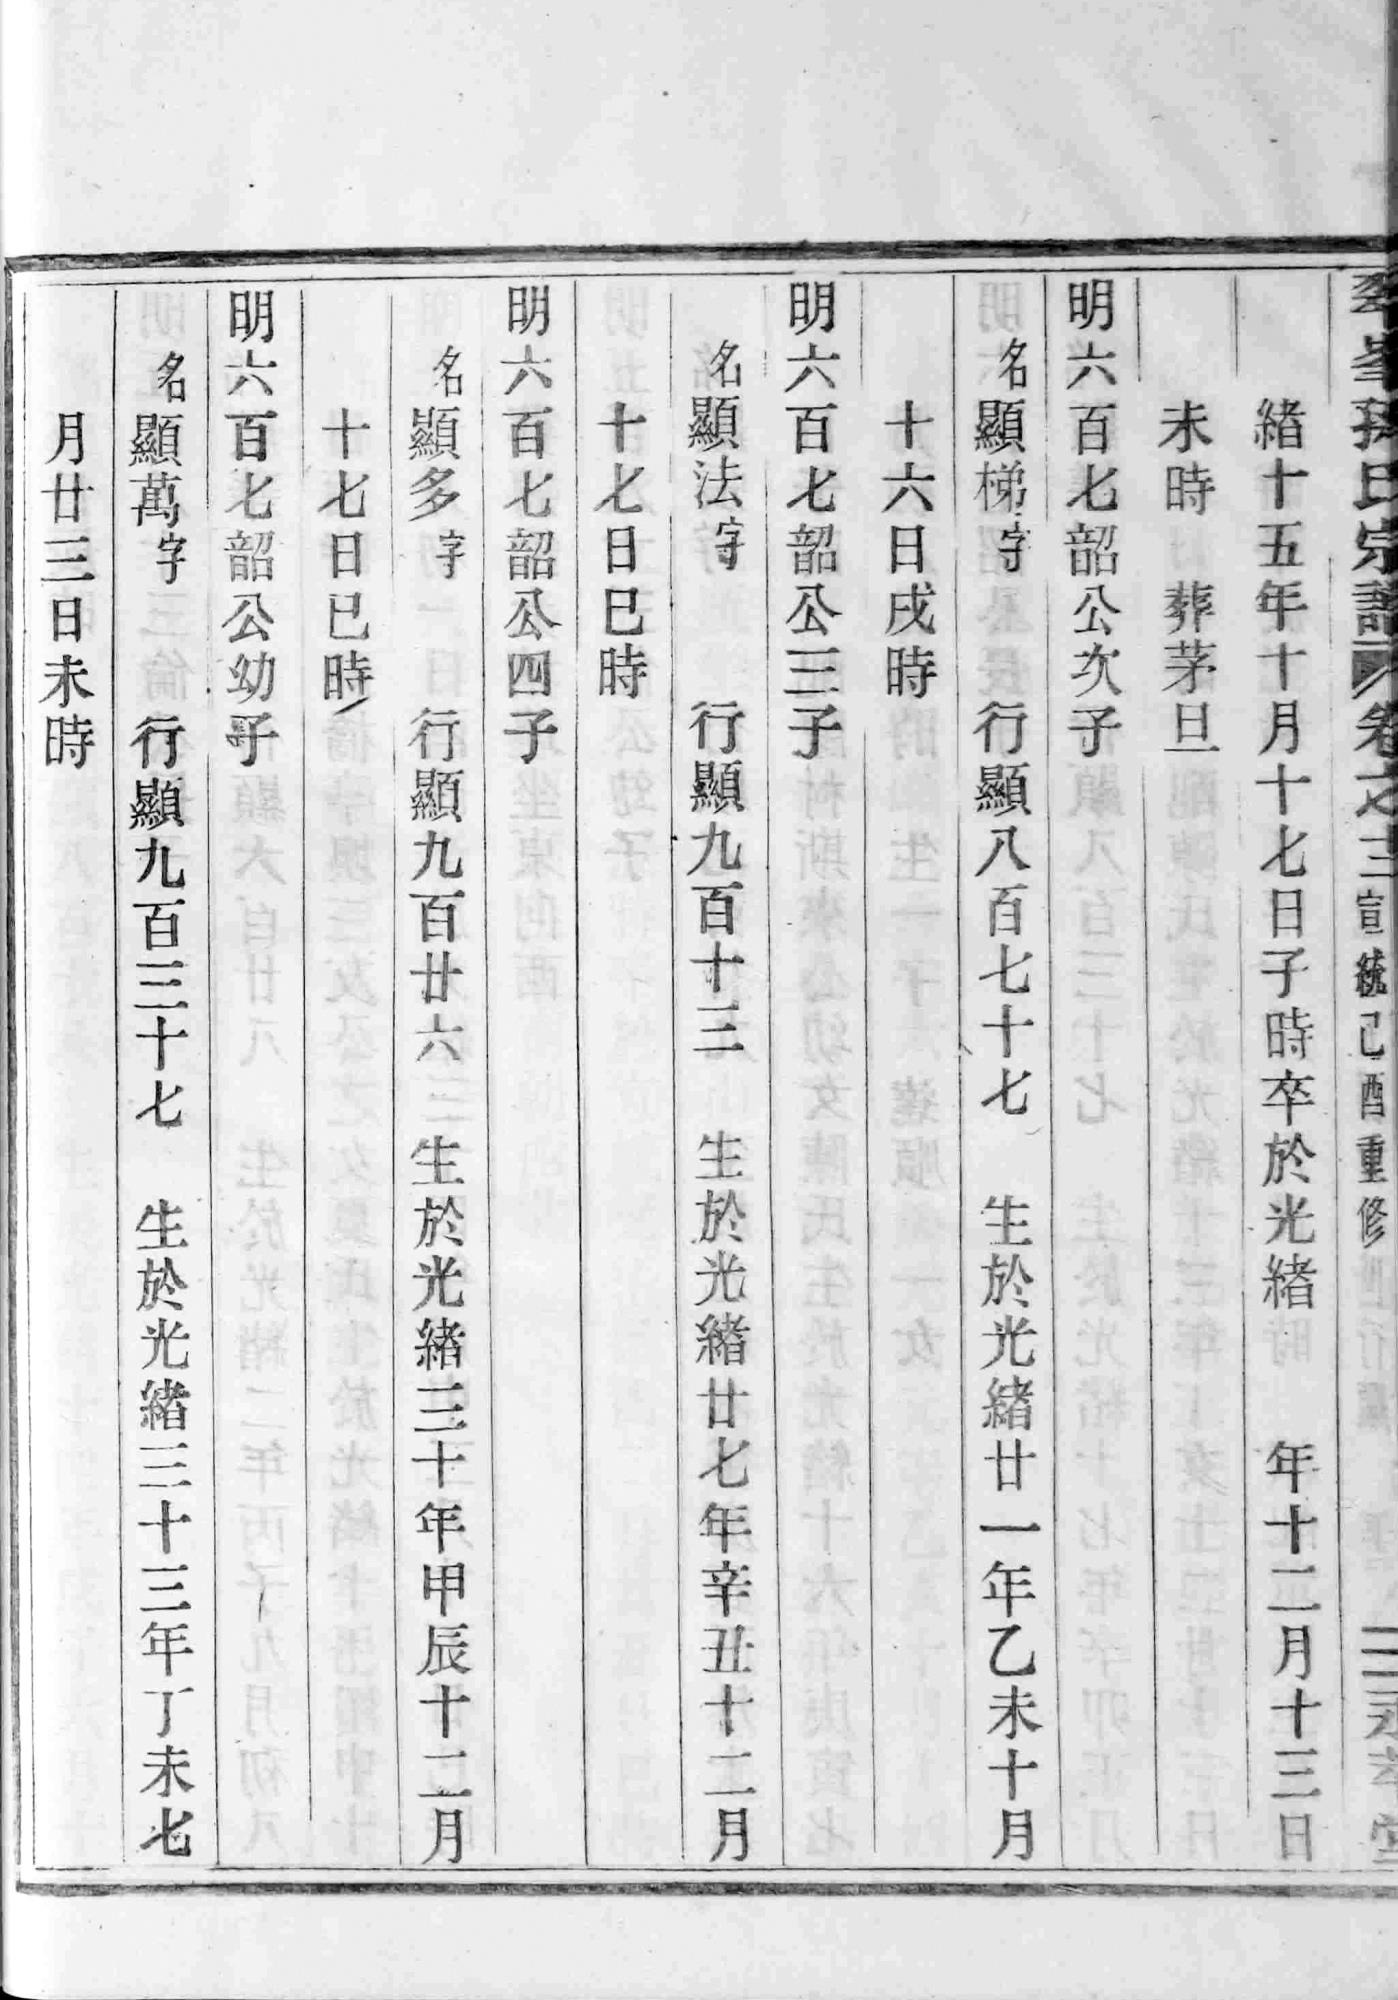 氏宗譜 卷之十三 宣統己酉重修
緒十五年十月十七日子時卒於光緒 年十二月十三日
未時 葬茅旦
明六百七韶公次子
名顯梯字 行顯八百七十七 生於光緒廿一年乙未十月
十六日戌時
明六百七韶公三子
名顯法字 行顯九百十三 生於光緒廿七年辛丑十二月
十七日巳時
明六百七韶公四子
名顯多字 行顯九百廿六 生於光緒三十年甲辰十二月
十七日巳時
明六百七韶公幼子
名顯萬字 行顯九百三十七 生於光緒三十三年丁未七
月廿三日未時